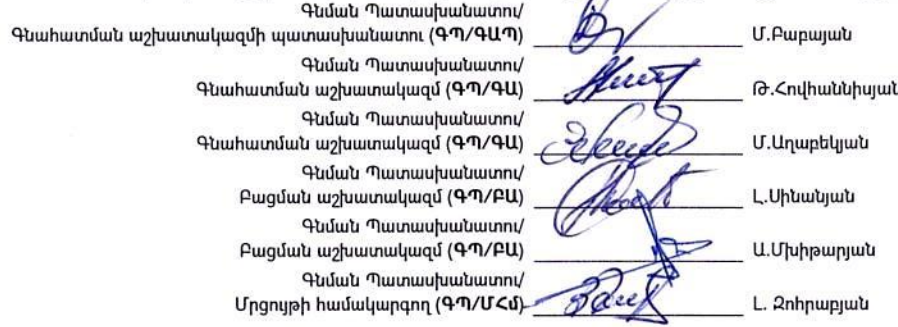 Գնման Պատասխանատու/
Գնահատման աշխատակազմի պատասխանատու (ԳՊ/ԳԱՊ) Մ.Բաբայան
Գնման Պատասխանատու/
Գնահատման աշխատակազմ (ԳՊ/ԳԱ) Թ.Հովհաննիսյան
Գնման Պատասխանատու/
Գնահատման աշխատակազմ (ԳՊ/ԳԱ) Մ.Աղաբեկյան
Գնման Պատասխանատու/
Բացման աշխատակազմ (ԳՊ/ԲԱ) Լ.Սինանյան
Գնման Պատասխանատու/
Բացման աշխատակազմ (ԳՊ/ԲԱ) Ա.Մխիթարյան
Գնման Պատասխանատու/
Մրցույթի համակարգող (ԳՊ/ՄՀմ) Լ. Զոհրաբյան